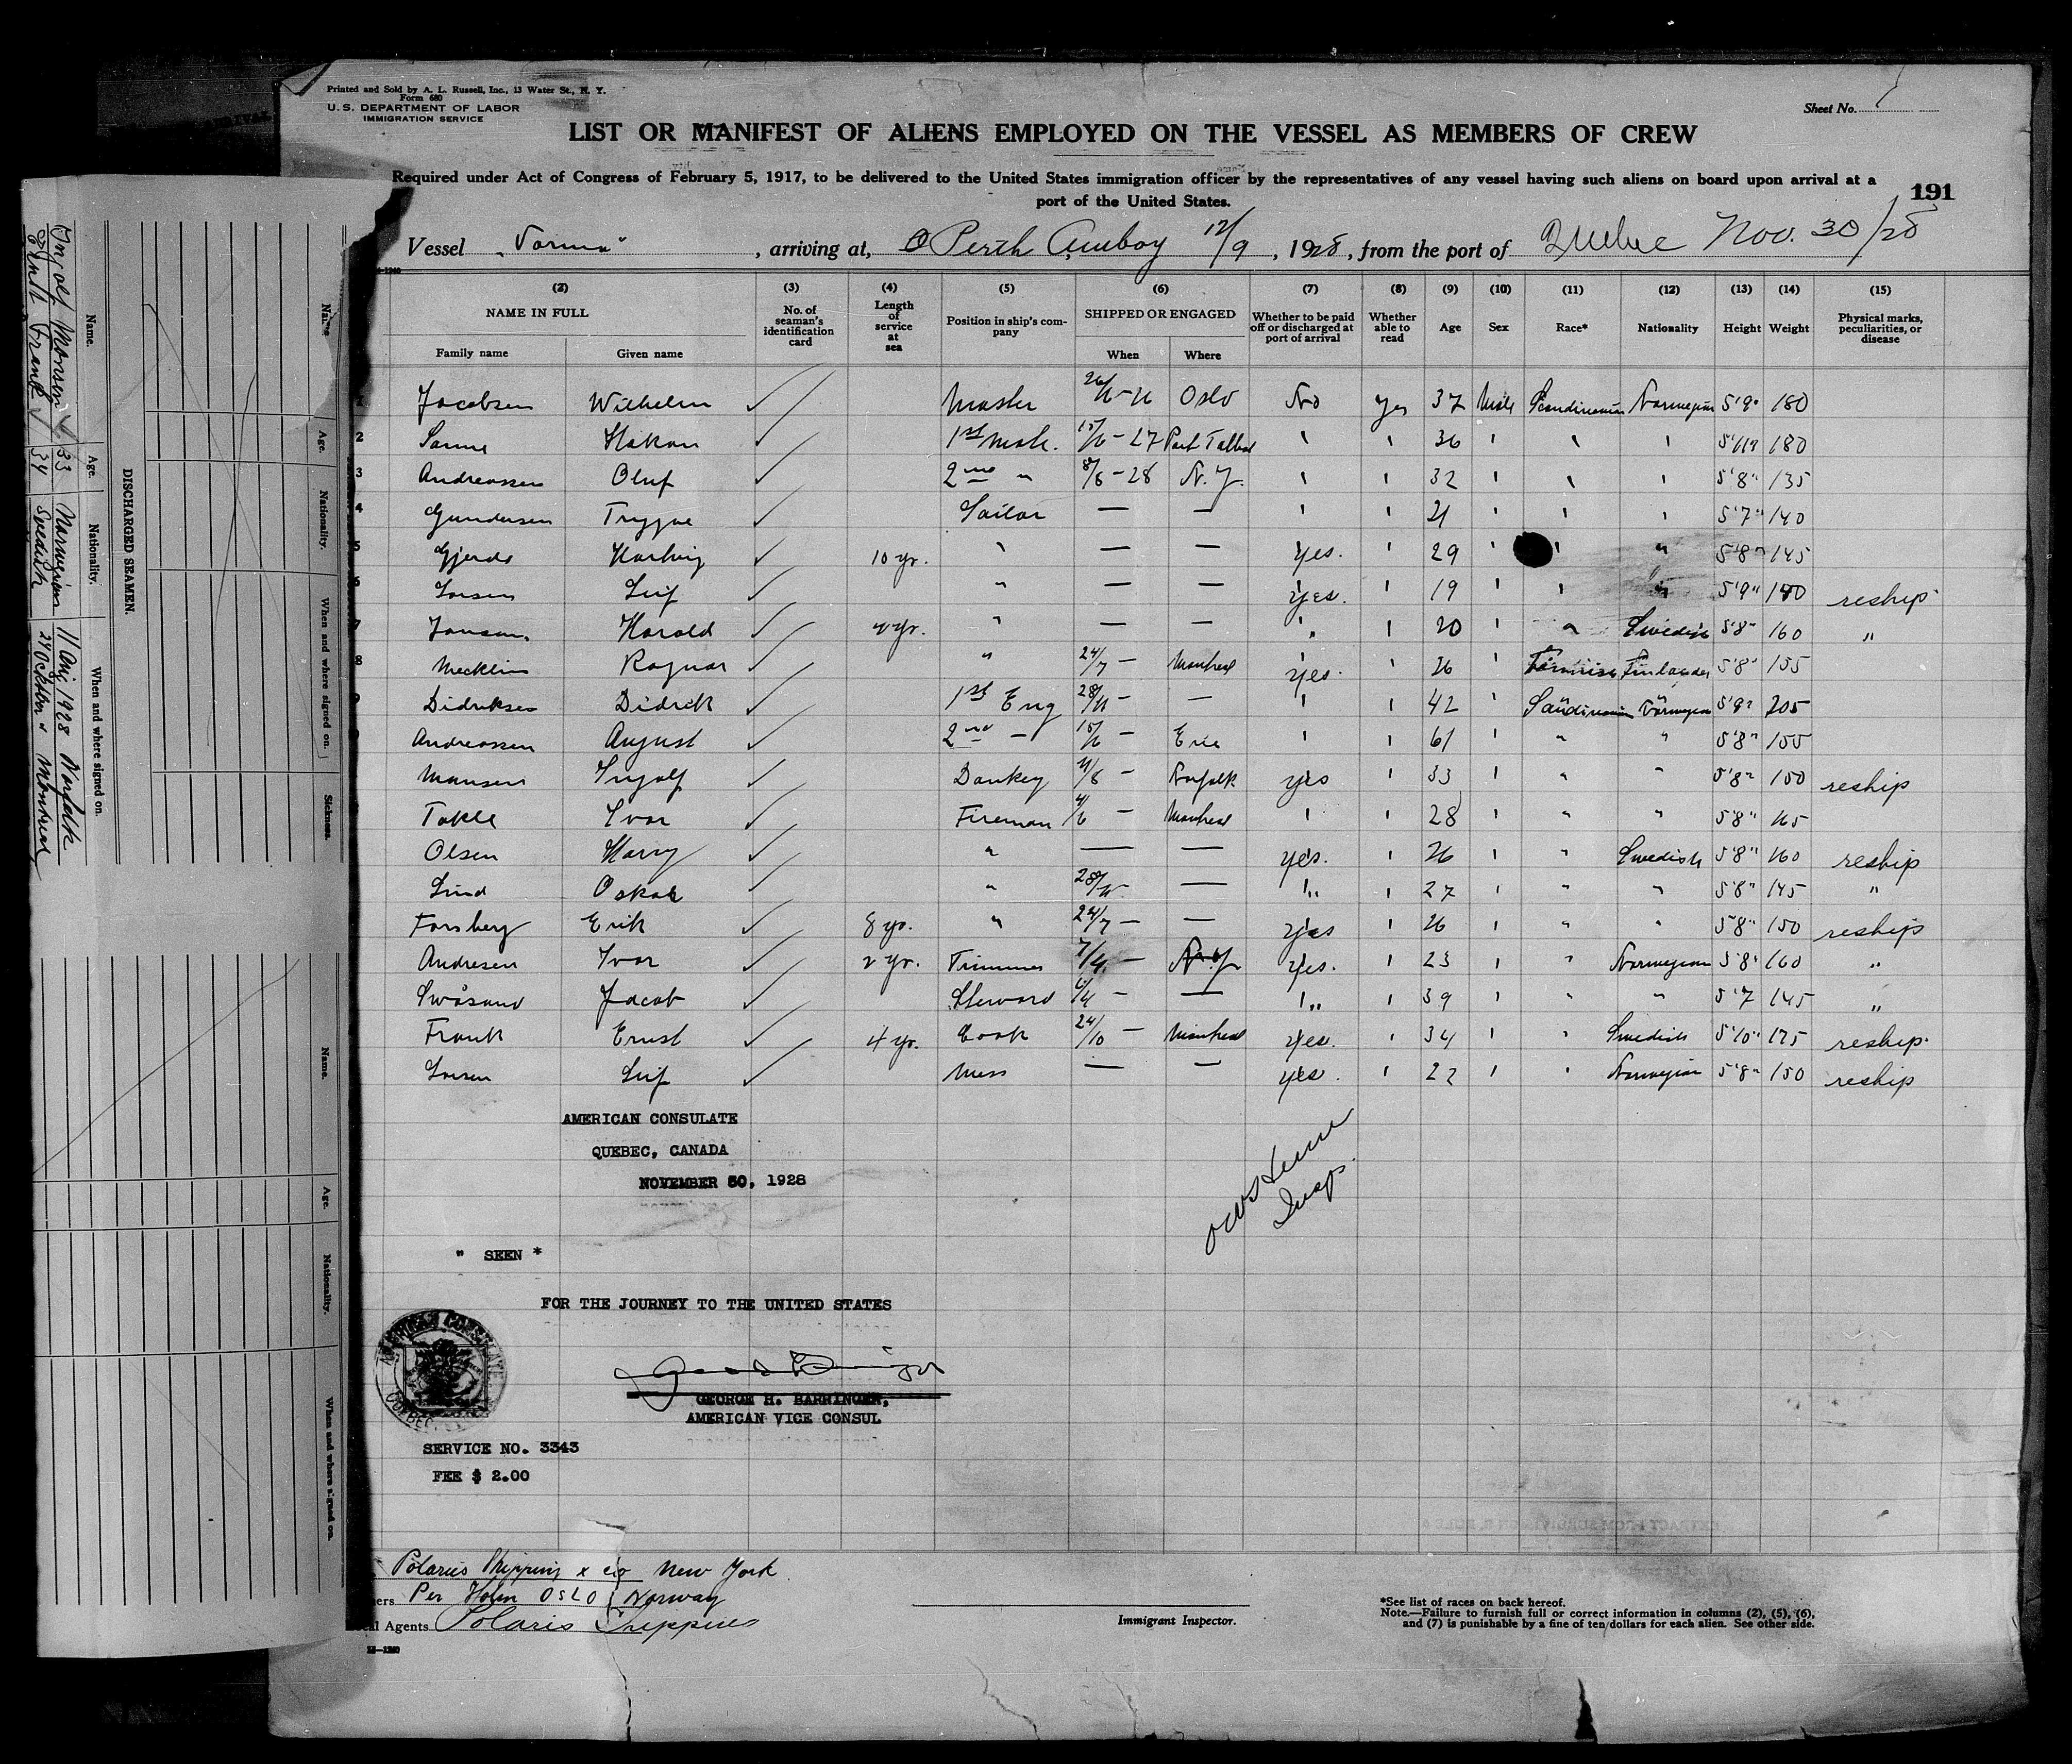 Printed and Sold by A. L. Russell, Inc., 13 Water St., N. Y.
Form 680
U. S. DEPARTMENT OF LABOR
IMMIGRATION SERVICE
Sheet No. 1
LIST OR MANIFEST OF ALIENS EMPLOYED ON THE VESSEL AS MEMBERS OF CREW
Required under Act of Congress of February 5, 1917, to be delivered to the United States immigration officer by the representatives of any vessel having such aliens on board upon arrival at a
port of the United States.
191
Vessel , arriving at, Perth Amboy 12/9, 1928, from the port of Quebec Nov. 30/28
(2) (3) (4) (5) (6) (7) (8) (9) (10) (11) (12) (13) (14) (15)
NAME IN FULL No. of seaman's identification card Length of service at sea Position in ship's company SHIPPED OR ENGAGED Whether to be paid off or discharged at port of arrival Whether able to read Age Sex Race* Nationality Height Weight Physical marks, peculiarities, or disease
Family name Given name When Where
Jacobsen Wilhelm Master Oslo No Yes 37 Male Scandinavian Norwegian 5'9" 180
2 Hakon 1st Mate 36 180
3 Andreassen Oluf 2nd " 8/6-28 N.Y. 32 5'8" 135
4 Gundersen Trygve Sailor — — 21 5'7" 140
5 Gjerde 10 yr. — — Yes. 29 " 5'8" 145
6 Leif " — — yes. 19 5'9" reship
7 Harald " — — 20 " Swedish 5'8" 160 "
8 Ragnar " 24/7 — Montreal yes. 26 Finlander 5'8" 155
Didriksen Didrik 1st Eng — 42 Norwegian 5'9" 205
Andreassen August 2nd — Erie 61 " " 5'8" 155
Ingolf Donkey Norfolk yes 33 " " 5'8" 150 reship
Takle Ivar Fireman Montreal 28 " " 5'8" 165
Olsen Harry " — — yes. 26 " Swedish 5'8" 160 reship
Lind Oskar " — " 27 " " 5'8" 145 "
Forsberg Erik 8 yr. " 24/7 — — yes 26 " " 5'8" 150 reship
Andresen Ivar 2 yr. Trimmer 7/4 — N.Y. Yes. 23 " Norwegian 5'8" 160 "
Jacob Steward — " 39 " " 5'7 145 "
Frank Ernst 4 yr. Cook 24/10 — Montreal yes. 34 " Swedish 5'10" 175 reship.
Leif Mess — — yes. 22 " Norwegian 5'8" 150 reship
AMERICAN CONSULATE
QUEBEC, CANADA
NOVEMBER 30, 1928
Insp.
" SEEN "
FOR THE JOURNEY TO THE UNITED STATES
AMERICAN CONSULATE
QUEBEC
GEORGE H. BARRINGER,
AMERICAN VICE CONSUL
SERVICE NO. 3343
FEE $ 2.00
Polaris Shipping & Co New York
Per Holm OSLO Norway
Agents Polaris Shipping
Immigrant Inspector.
*See list of races on back hereof.
Note.—Failure to furnish full or correct information in columns (2), (5), (6),
and (7) is punishable by a fine of ten dollars for each alien. See other side.
DISCHARGED SEAMEN.
Name. Age. Nationality. When and where signed on.
Ingolf 33 Norwegian 11 Aug 1928 Norfolk
Ernst Frank 34 Swedish 24 October " Montreal
Name Age. Nationality. When and where signed on. Sickness.
Name. Age. Nationality. When and where signed on.